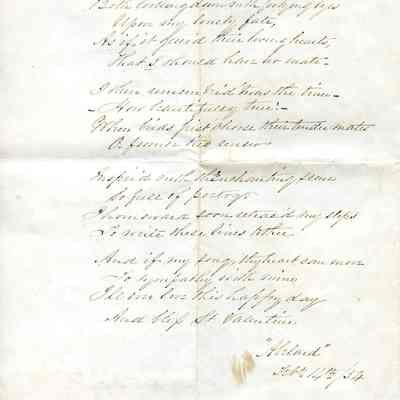 Both looking down with pitying eyes
Upon my lonely fate,
As if it griev'd their loving hearts,
That I should have no mate.
I then remember'd 'twas the time
How beautifully true!
When birds first choose their tender mates
Inspir'd with the enchanting scene
So full of poetry
I homeward soon retrac'd my steps
To write these lines to thee.
And if my song thy heart can move
To sympathy with mine
I'll ever love this happy day
And bless St Valentine.
"Abelard"
Feb. 14th/54